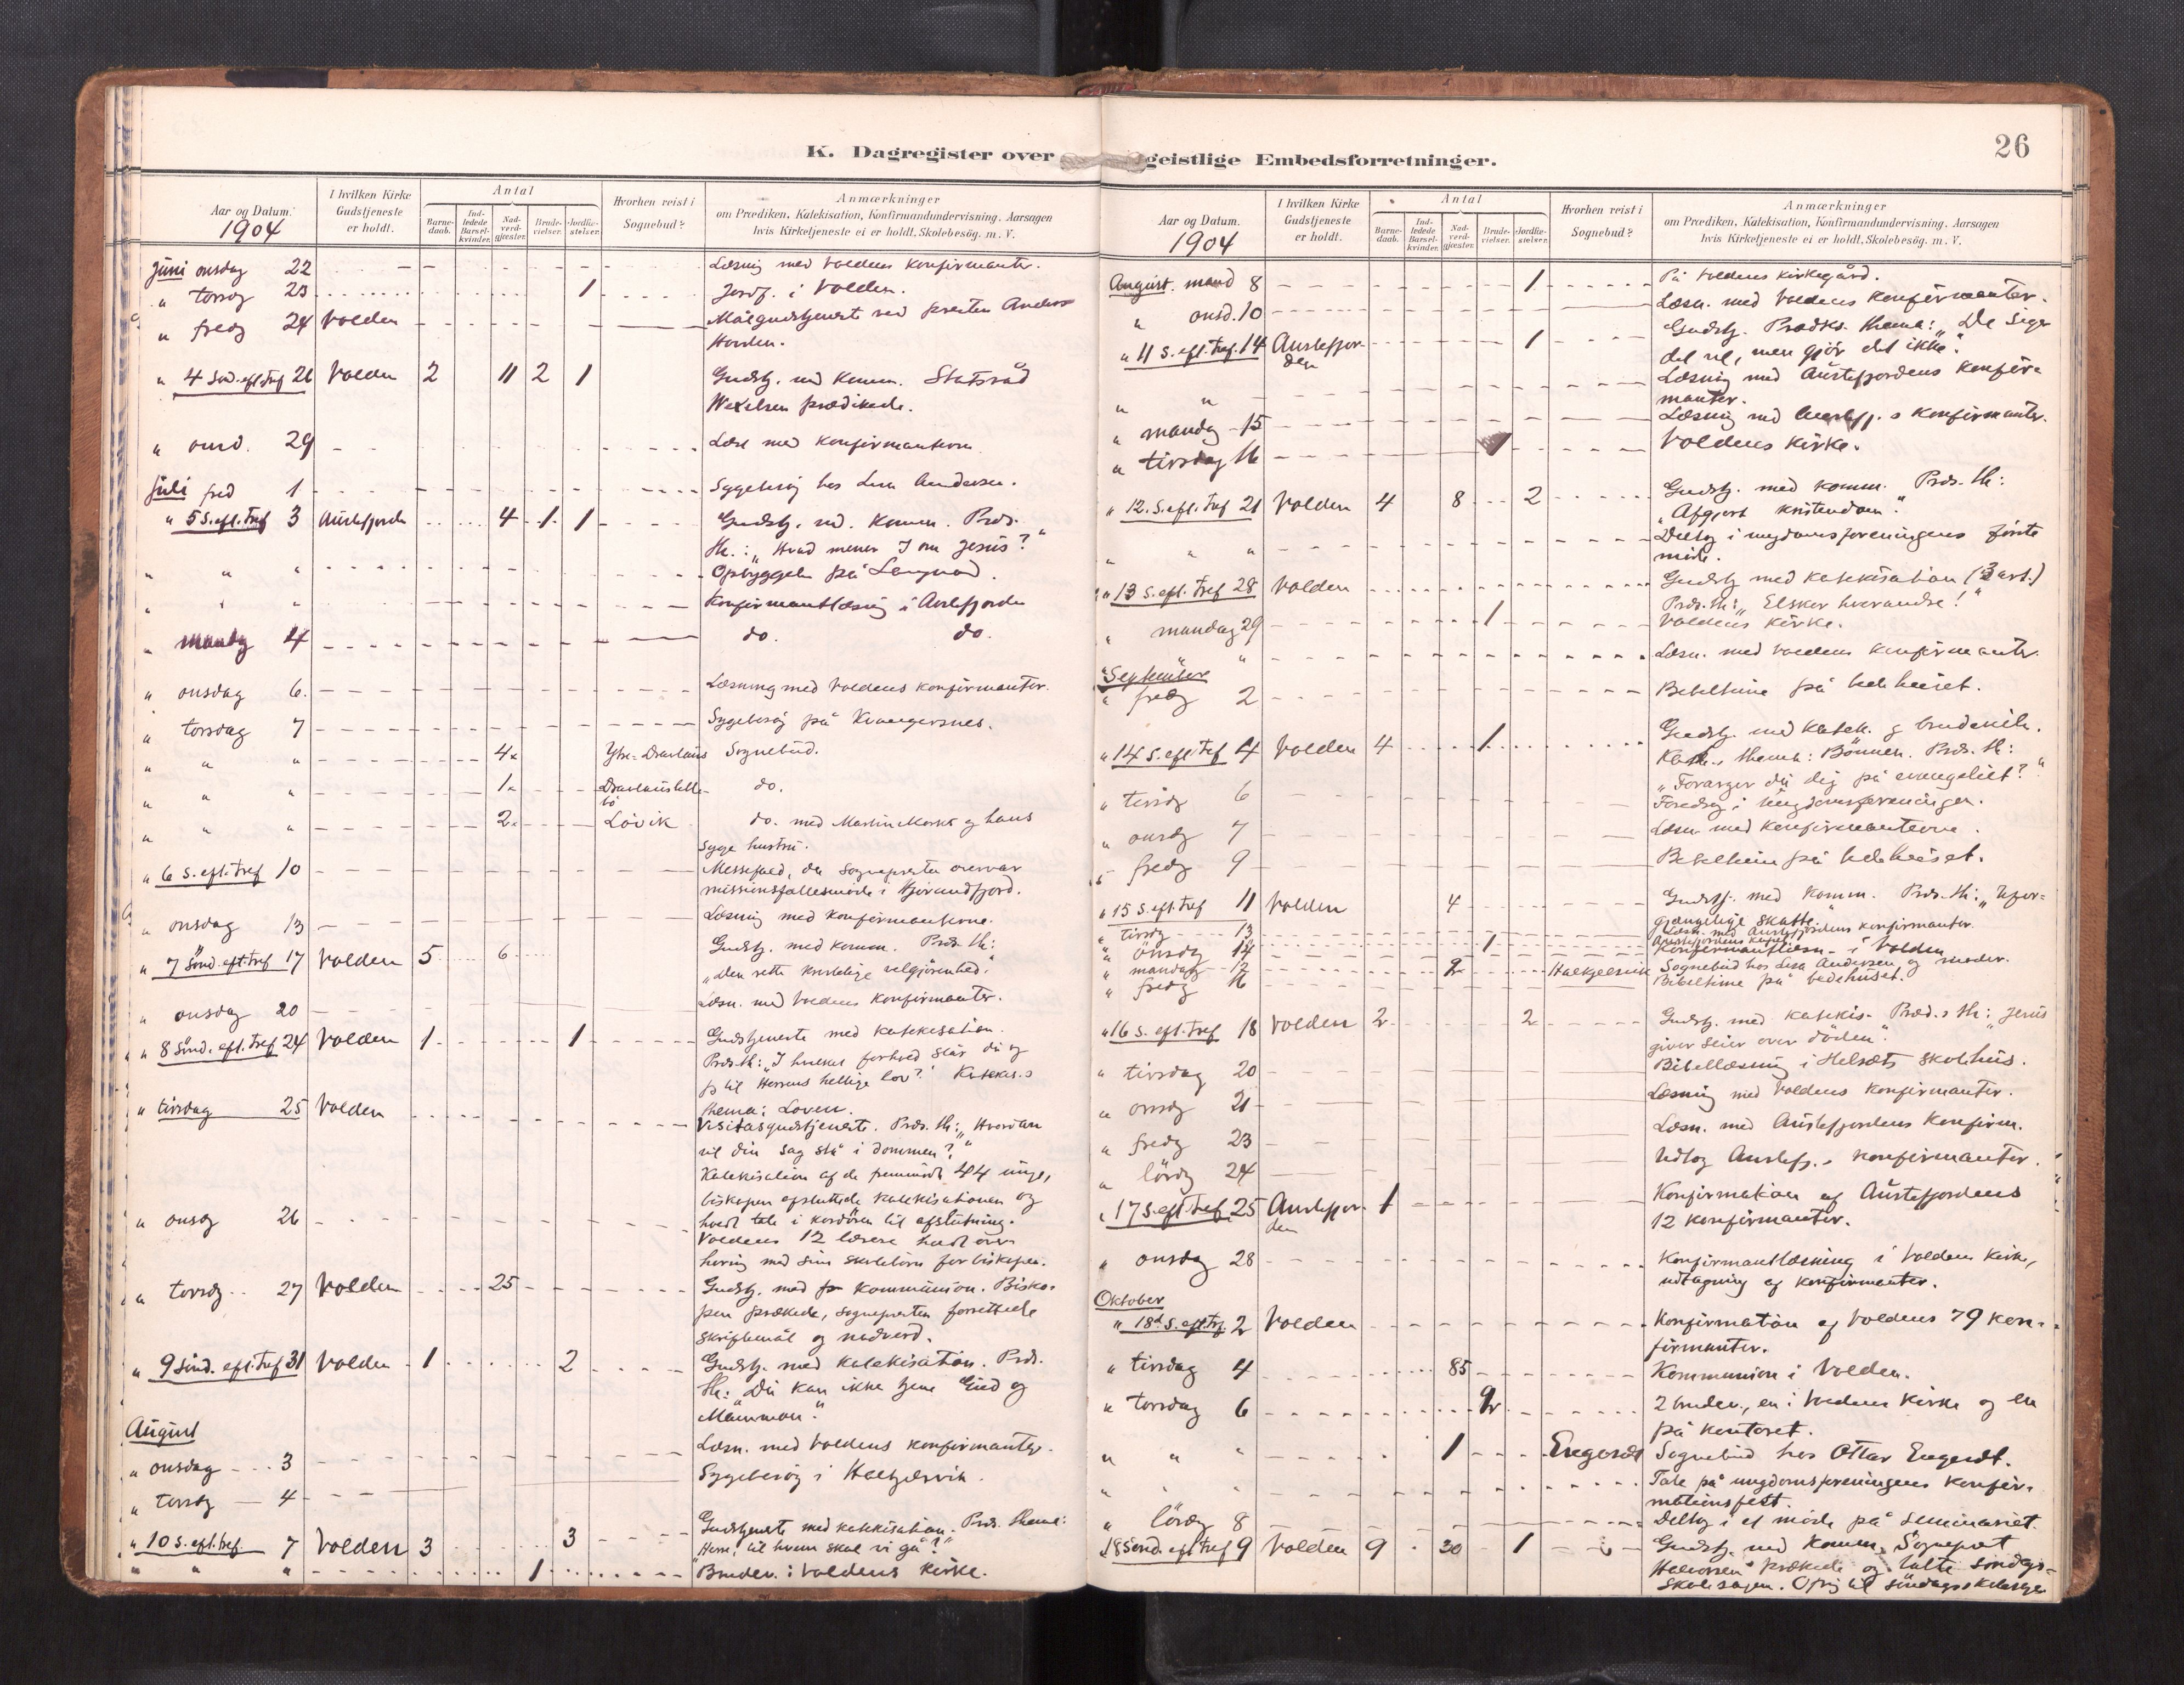 K. Dagregister over geistlige Embedsforretninger.
26
Aar og Datum. 1904
I hvilken Kirke Gudstjeneste er holdt.
Antal
Barne-daab. Ind-ledede Barsel-kvinder. Nad-verd-gjæster. Brude-vielser. Jordfæ-stelser.
Hvorhen reist i Sognebud?
Anmærkninger
om Prædiken, Katekisation, Konfirmandundervisning. Aarsagen
hvis Kirketjeneste ei er holdt. Skolebesög. m. V.
Juni onsdag 22 Læsning med Voldens konfirmanter.
" torsdg 23 1 Jordf. i Volden.
" fredg 24 Volden Målgudstjeneste ved presten Anders
Hovden.
" 4 Sød. eft. Tref 26 Volden 2 11 2 1 Gudstj. med Komm. Statsråd
Wexelsen prædikede.
" onsd. 29 Læst med konfirmanterne
Juli fred 1 Sygebesøg hos Lisa Andersen.
" 5 S. eft. Tref 3 Austefjorden 4 1 1 Gudstj. md. Komm. Præd.
th.: "Hvad mener I om Jesus?"
" " " Opbyggelse på
" " " Konfirmantlæsning i Austefjorden
" mandg 4 do. do.
" onsdag 6. Læsning med Voldens konfirmanter.
" torsdag 7 Sygebesøg på Kvangersnes.
" " " 4 Ytre-Dravlaus Sognebud.
" " " 1 do.
" " " 2 Løvik do. med Martin Mork og hans
syge hustru.
" 6 S. eft. Tref 10 Messefald, da Sognepresten overvar
missionsfællesmøde i
" onsdag 13 Læsning med konfirmanterne.
" 7 Sønd. eft. Tref 17 Volden 5 6 Gudstj. med komm. Præd. th:
"Den rette kristelige velgjørenhed."
" onsdag 20 Læsn. med Voldens konfirmanter.
" 8 Sønd. eft. Tref 24 Volden 1 1 Gudstjeneste med katekisation.
Præd. th: "I hvilket forhold står du og
jeg til Herrens hellige lov?" Katekis.s
thema: Loven.
" tirsdag 25 Volden Visitasgudstjeneste. Præd. th: "Hvordan
vil din sag stå i dommen?"
Katekisation af de fremmødte 44 unge,
biskopen afsluttede katekisationen og
holdt tale i kordøren til afslutning.
" onsdg 26 Voldens 12 lærere holdt over-
høring med sine skolebørn for biskopen.
" torsdg 27 Volden 25 Gudstj. med kommunion. Bisko-
pen prækede, sognepresten forrettede
skriftemål og nadverd.
" 9 Sønd. eft. Tref 31 Volden 1 2 Gudstj. med katekisation. Præd.
th: "Du kan ikke tjene Gud og
Mammon."
August
" onsdag 3 Læsn. med Voldens konfirmanter.
" torsdg 4 Sygebesøg i
" 10 S. eft. tref. 7 Volden 3 3 Gudstjeneste med katekisation. Præd. thema:
"Herre, til hvem skal vi gå?"
" " " 1 Brudev. i Voldens kirke.
Aar og Datum. 1904
I hvilken Kirke Gudstjeneste er holdt.
Antal
Barne-daab. Ind-ledede Barsel-kvinder. Nad-verd-gjæster. Brude-vielser. Jordfæ-stelser.
Hvorhen reist i Sognebud?
Anmærkninger
om Prædiken, Katekisation, Konfirmandundervisning. Aarsagen
hvis Kirketjeneste ei er holdt. Skolebesög. m. V.
August. mand 8 1 På Voldens kirkegård.
" onsd. 10 Læsn. med Voldens konfirmanter.
" 11 S. eft. Tref. 14 Austefjorden 1 Gudstj. Prædks. thema: "De siger
det vel, men gjør det ikke."
" " Læsning med Austefjordens konfir-
manter.
" mandag 15 Læsning med Austefj.s konfirmanter.
" tirsdag 16 1 Voldens kirke.
" 12. S. eft. Tref 21 Volden 4 8 2 Gudstj. med komm. Præd. th:
"Afgjort kristendom."
" " " Deltog i ungdomsforeningens første
møde.
" 13 S. eft. Tref 28 Volden Gudstj med katekisation (3 art.)
Præd. th: "Elsker hverandre!"
" mandag 29 1 Voldens kirke.
" " Læsn. med Voldens konfirmanter.
September
" fredg 2 Bibeltime på bedehuset.
" 14 S. eft Tref 4 Volden 4 1 Gudstj. med katek. og brudevielse.
Katek.s thema: Bønnen. Præd. th:
"Forarger du dig på evangeliet?"
" tirsdg 6 Foredrag i Ungdomsforeningen.
" onsdg 7 Læsn med konfirmanterne.
" fredg 9 Bibeltime på bedehuset.
" 15 S. eft. Tref 11 Volden 4 Gudstj. med komm. Præd. th: "Ufor-
gjængelige skatte."
" tirsdg 13 Læsn. med Austefjordens konfirmanter.
" onsdg 14 1 Austefjordens kirke
Konfirmantlæsn. i Volden
" mandag 12 2 Sognebud hos Lisa Andersen og moder.
" fredg 16 Bibeltime på bedehuset.
" 16 S. eft. Tref 18 Volden 2 2 Gudstj. med katekis. Præd.s th: "Jesus
giver seier over døden".
" tirsdag 20 Bibellæsning i Helsets skolehus.
" onsdg 21 Læsning med Voldens konfirmanter.
" fredg 23 Læsn. med Austefjordens konfirm.
" lördg 24 Udtog Austefj.s konfirmanter.
" 17 S. eft. Tref. 25 Austefjorden 1 Konfirmation af Austefjordens
12 konfirmanter.
" onsdag 28 Konfirmantlæsning i Voldens kirke,
udtagning af konfirmanter.
Oktober
" 18d S. eft. Trf. 2 Volden Konfirmation af Voldens 79 kon-
firmanter.
" tirsdag 4 85 Kommunion i Volden.
" torsdag 6 2 2 brudev., en i Voldens kirke og en
på kontoret.
" " " 1 Engeset Sognebud hos Ottar Engeset.
" " " Tale på ungdomsforeningens konfir-
mationsfest.
" lördg 8 Deltog i et møde på Seminariet.
18 Sönd. eft Tref 9 Volden 9 30 1 Gudstj. med Komm. Sogneprest
Halvorsen prækede og talte søndags-
skolesagen. Ofring til søndagsskolesagen